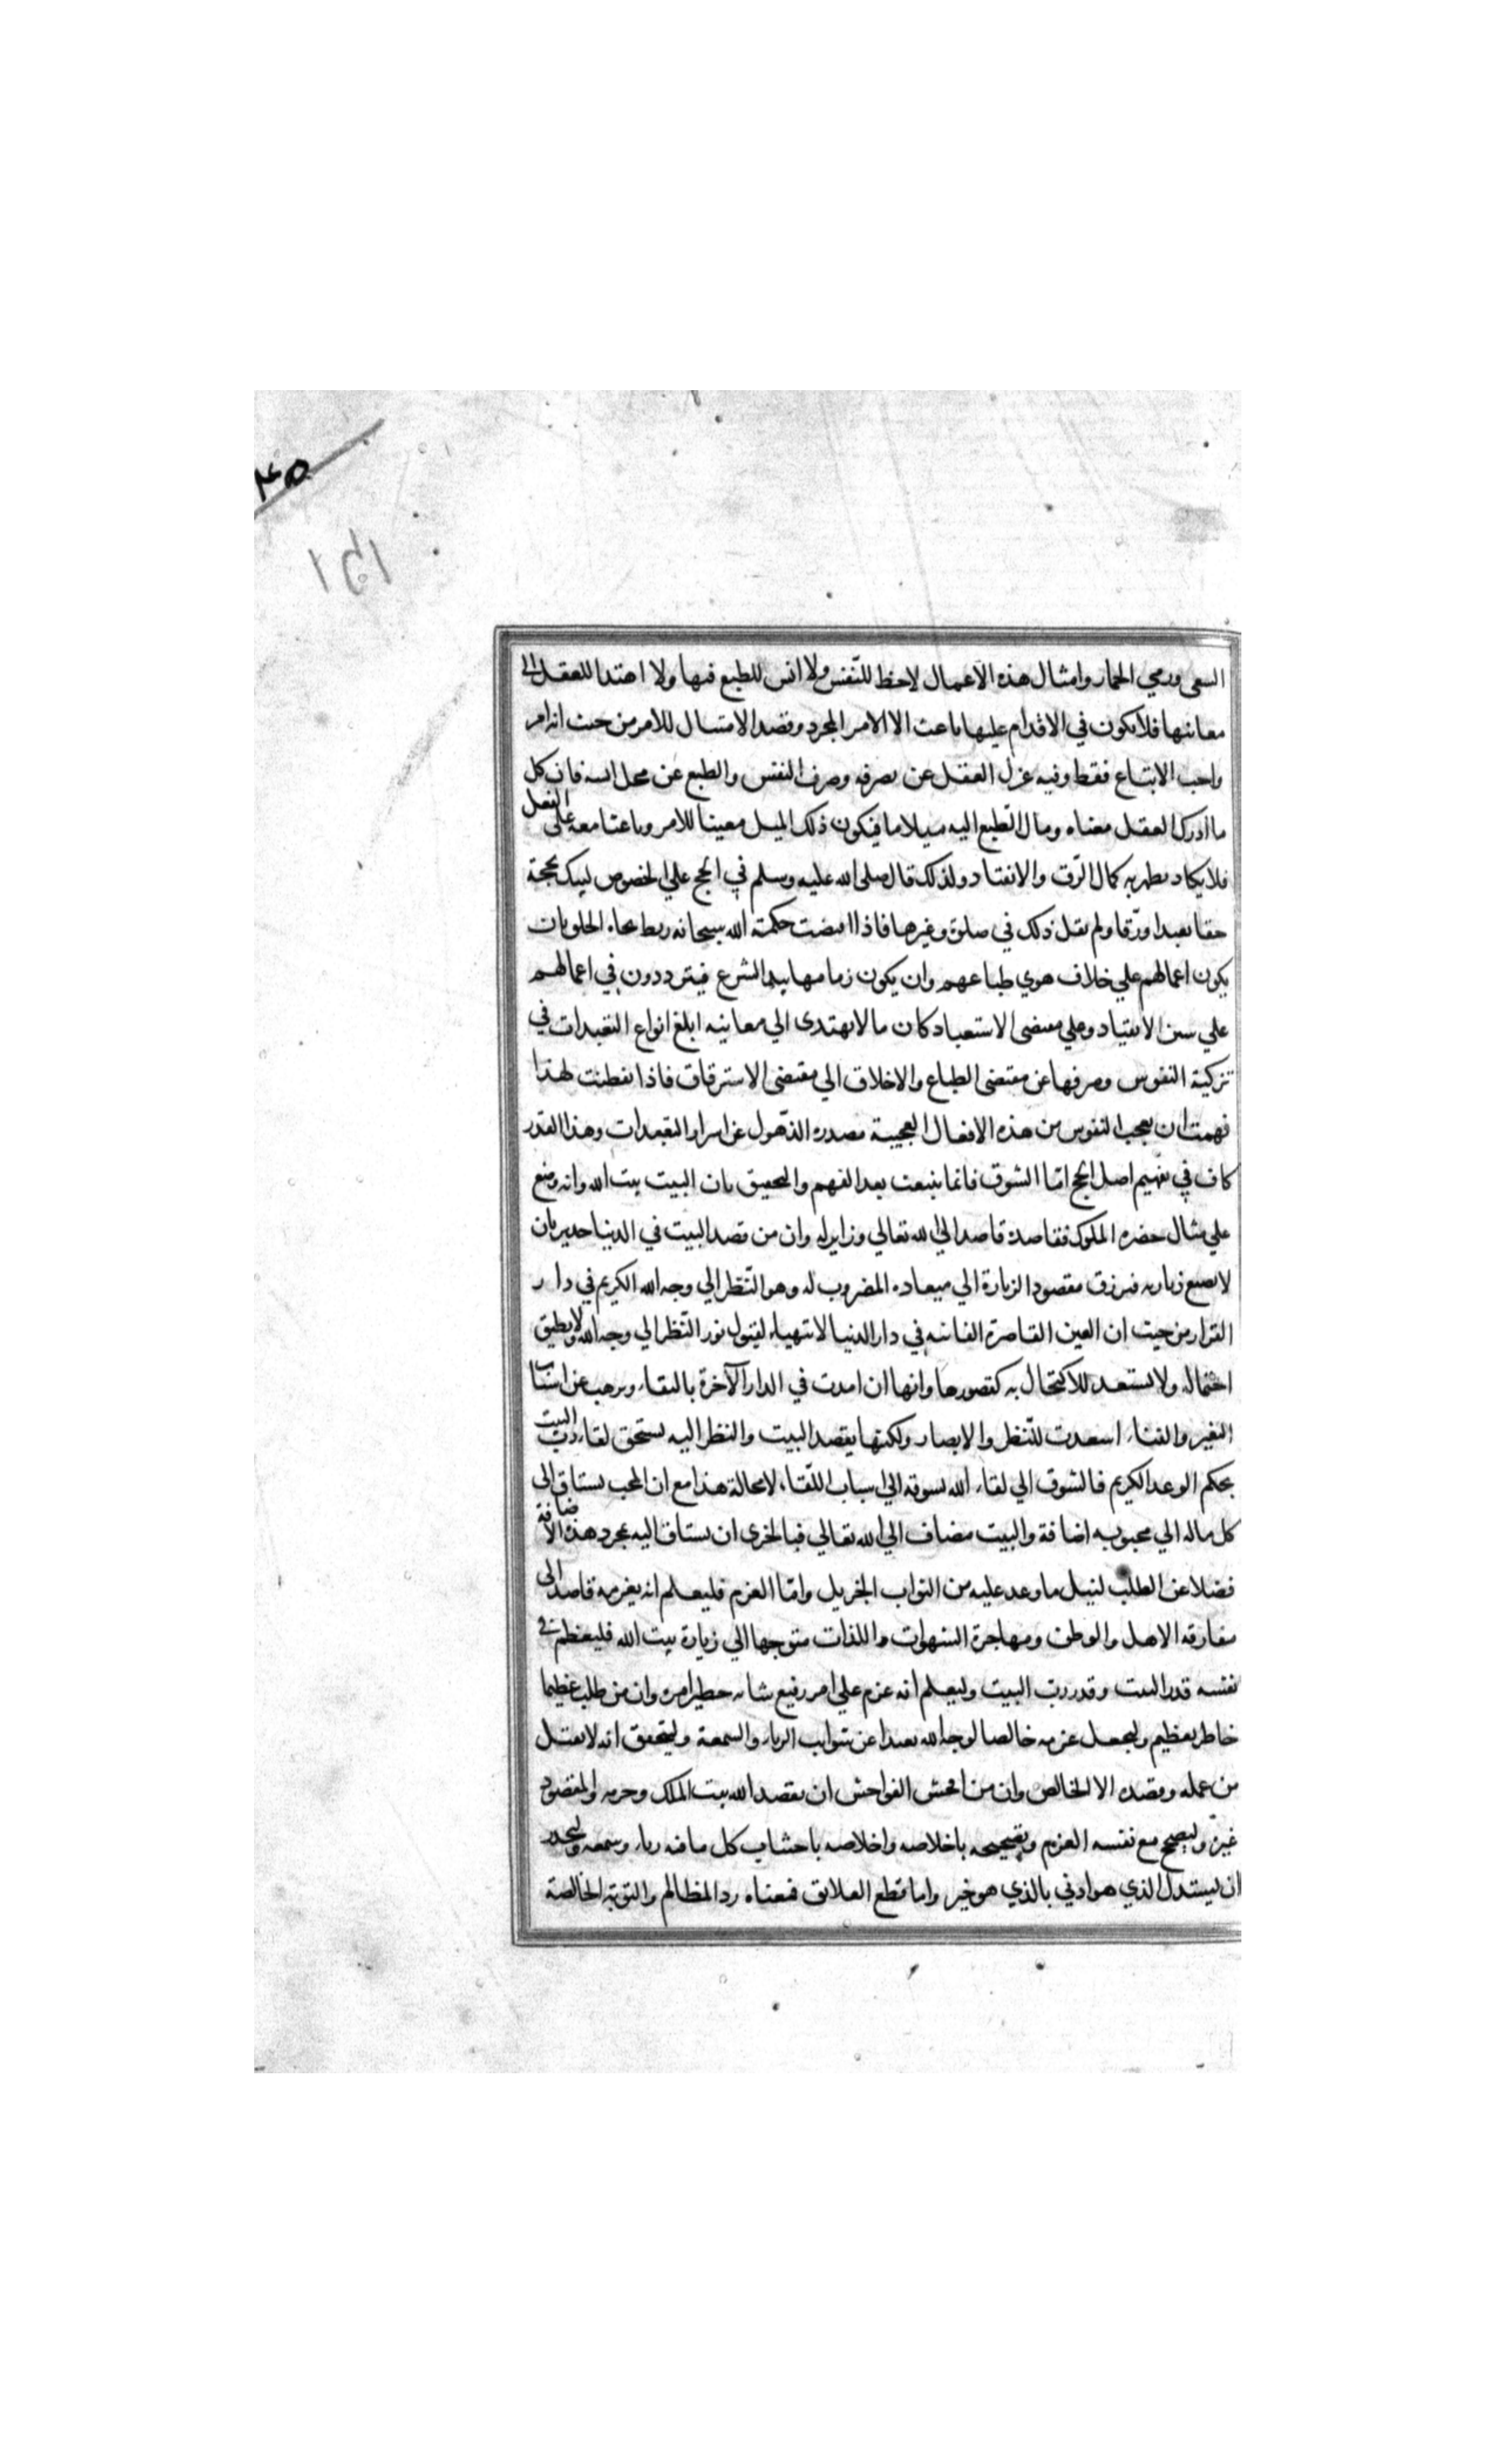 السعى ورمي الجمار وامثال هذه الاعمال لاحظ للنفس ولا انس للطبع فيها ولا اهتدا للعقل الى
معانيها فلا يكون في الاقدام عليها باعث الا الامر المجرد وقصد الامتثال للامر من حيث انه امر
واجب الاتباع فقط وفيه عزل العقل عن تصرفه وصرف النفس والطبع عن محل انسه فان كل
ما ادرك العقل معناه ومال الطبع اليه ميلا ما فيكون ذلك الميل معينا للامر وباعثا معه على الفعل
فلا يكاد يظهر به كمال الرّق والانقياد ولذلك قال صلى الله عليه وسلم في الحج علي الخصوص لبيك بحجة
حقا تعبدا ورّقا ولم يقل ذلك في صلوة وغيرها فاذا اقتضت حكمة الله سبحانه ربط نجاة الخلق بان
يكون اعمالهم علي خلاف هوي طباعهم وان يكون زمامها بيد الشرع فيترددون في اعمالهم
علي سنن الانقياد وعلي مقتضى الاستعباد كان ما لا يهتدى الي معانيه ابلغ انواع التعبدات في
تزكية النفوس وصرفها عن مقتضى الطباع والاخلاق الي مقتضى الاسترقاق فاذا تفطنت لهذا
فهمت ان تعجب النفوس من هذه الافعال العجيبة مصدره الذّهول عن اسرار التعبدات وهذا القدر
كاف في تفهيم اصل الحج امّا الشوق فانما ينبعث بعد الفهم والتحقيق بان البيت بيت الله وانه وضع
علي مثال حضرة الملوك فقاصده قاصد الي الله تعالي وزاير له وان من قصد البيت في الدنيا جدير بان
لا يضيع زيارته فيرزق مقصود الزيارة الي ميعاده المضروب له وهو النّظر الي وجه الله الكريم في دار
القرار من حيث ان العين القاصرة الفانيه في دار الدنيا لا تتهياء لقبول نور النّظر الي وجه الله ولا يطيق
احتماله ولا تستعد للاكتحال به لقصورها وانها ان امدت في الدار الآخرة بالبقاء ونزهت عن اسباب
التغير والفناء استعدت للنّظر والابصار ولكنها بقصد البيت والنظر اليه تستحق لقاء رب البيت
بحكم الوعد الكريم فالشوق الي لقاء الله يسوقه الي اسباب اللّقاء لا محالة هذا مع ان المحب يشتاق الى
كل ماله الي محبوبه اضافة والبيت مضاف الي الله تعالي فبالحرى ان يشتاق اليه بمجرد هذه الاضافة
فضلا عن الطلب لنيل ما وعد عليه من الثواب الجزيل وامّا العزم فليعلم انه بعزمه قاصد الى
مفارقه الاهل والوطن ومهاجرة الشهوات واللذات متوجها الي زيارة بيت الله فليعظم في
نفسه قدر البيت وقدر رب البيت وليعلم انه عزم علي امر رفيع شانه خطير امره وان من طلب عظيما
خاطر بعظيم وليجعل عزمه خالصا لوجه الله بعيدا عن شوايب الرياء والسمعة وليتحقق انه لا يقبل
من عمله وقصده الا الخالص وان من افحش الفواحش ان يقصد الله بيت الملك وحرمه والمقصود
غيره وليصحح مع نفسه العزم وتصحيحه باخلاصه واخلاصه باجتناب كل ما فيه رياء وسمعه وليحذر
ان يستبدل الذي هو ادني بالذي هو خير واما قطع العلائق فمعناه رد المظالم والتوبة الخالصة